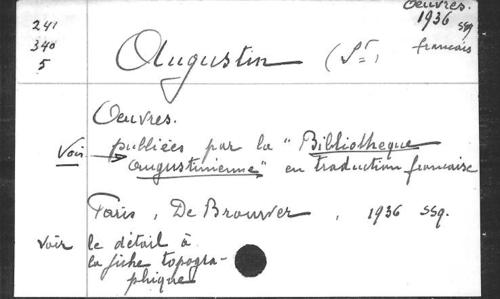 Oeuvres.
1936 ssq.
francais
241
340
5
Augustin (St=)
Oeuvres.
publiées par la "Bibliotheque
Voir augustinienne" en traduction francaise
Paris, De Brouwer, 1936 ssq.
voir le détail à
la fiche topogra-
phique